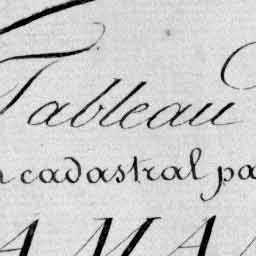 Tableau
cadastral pa
AMA